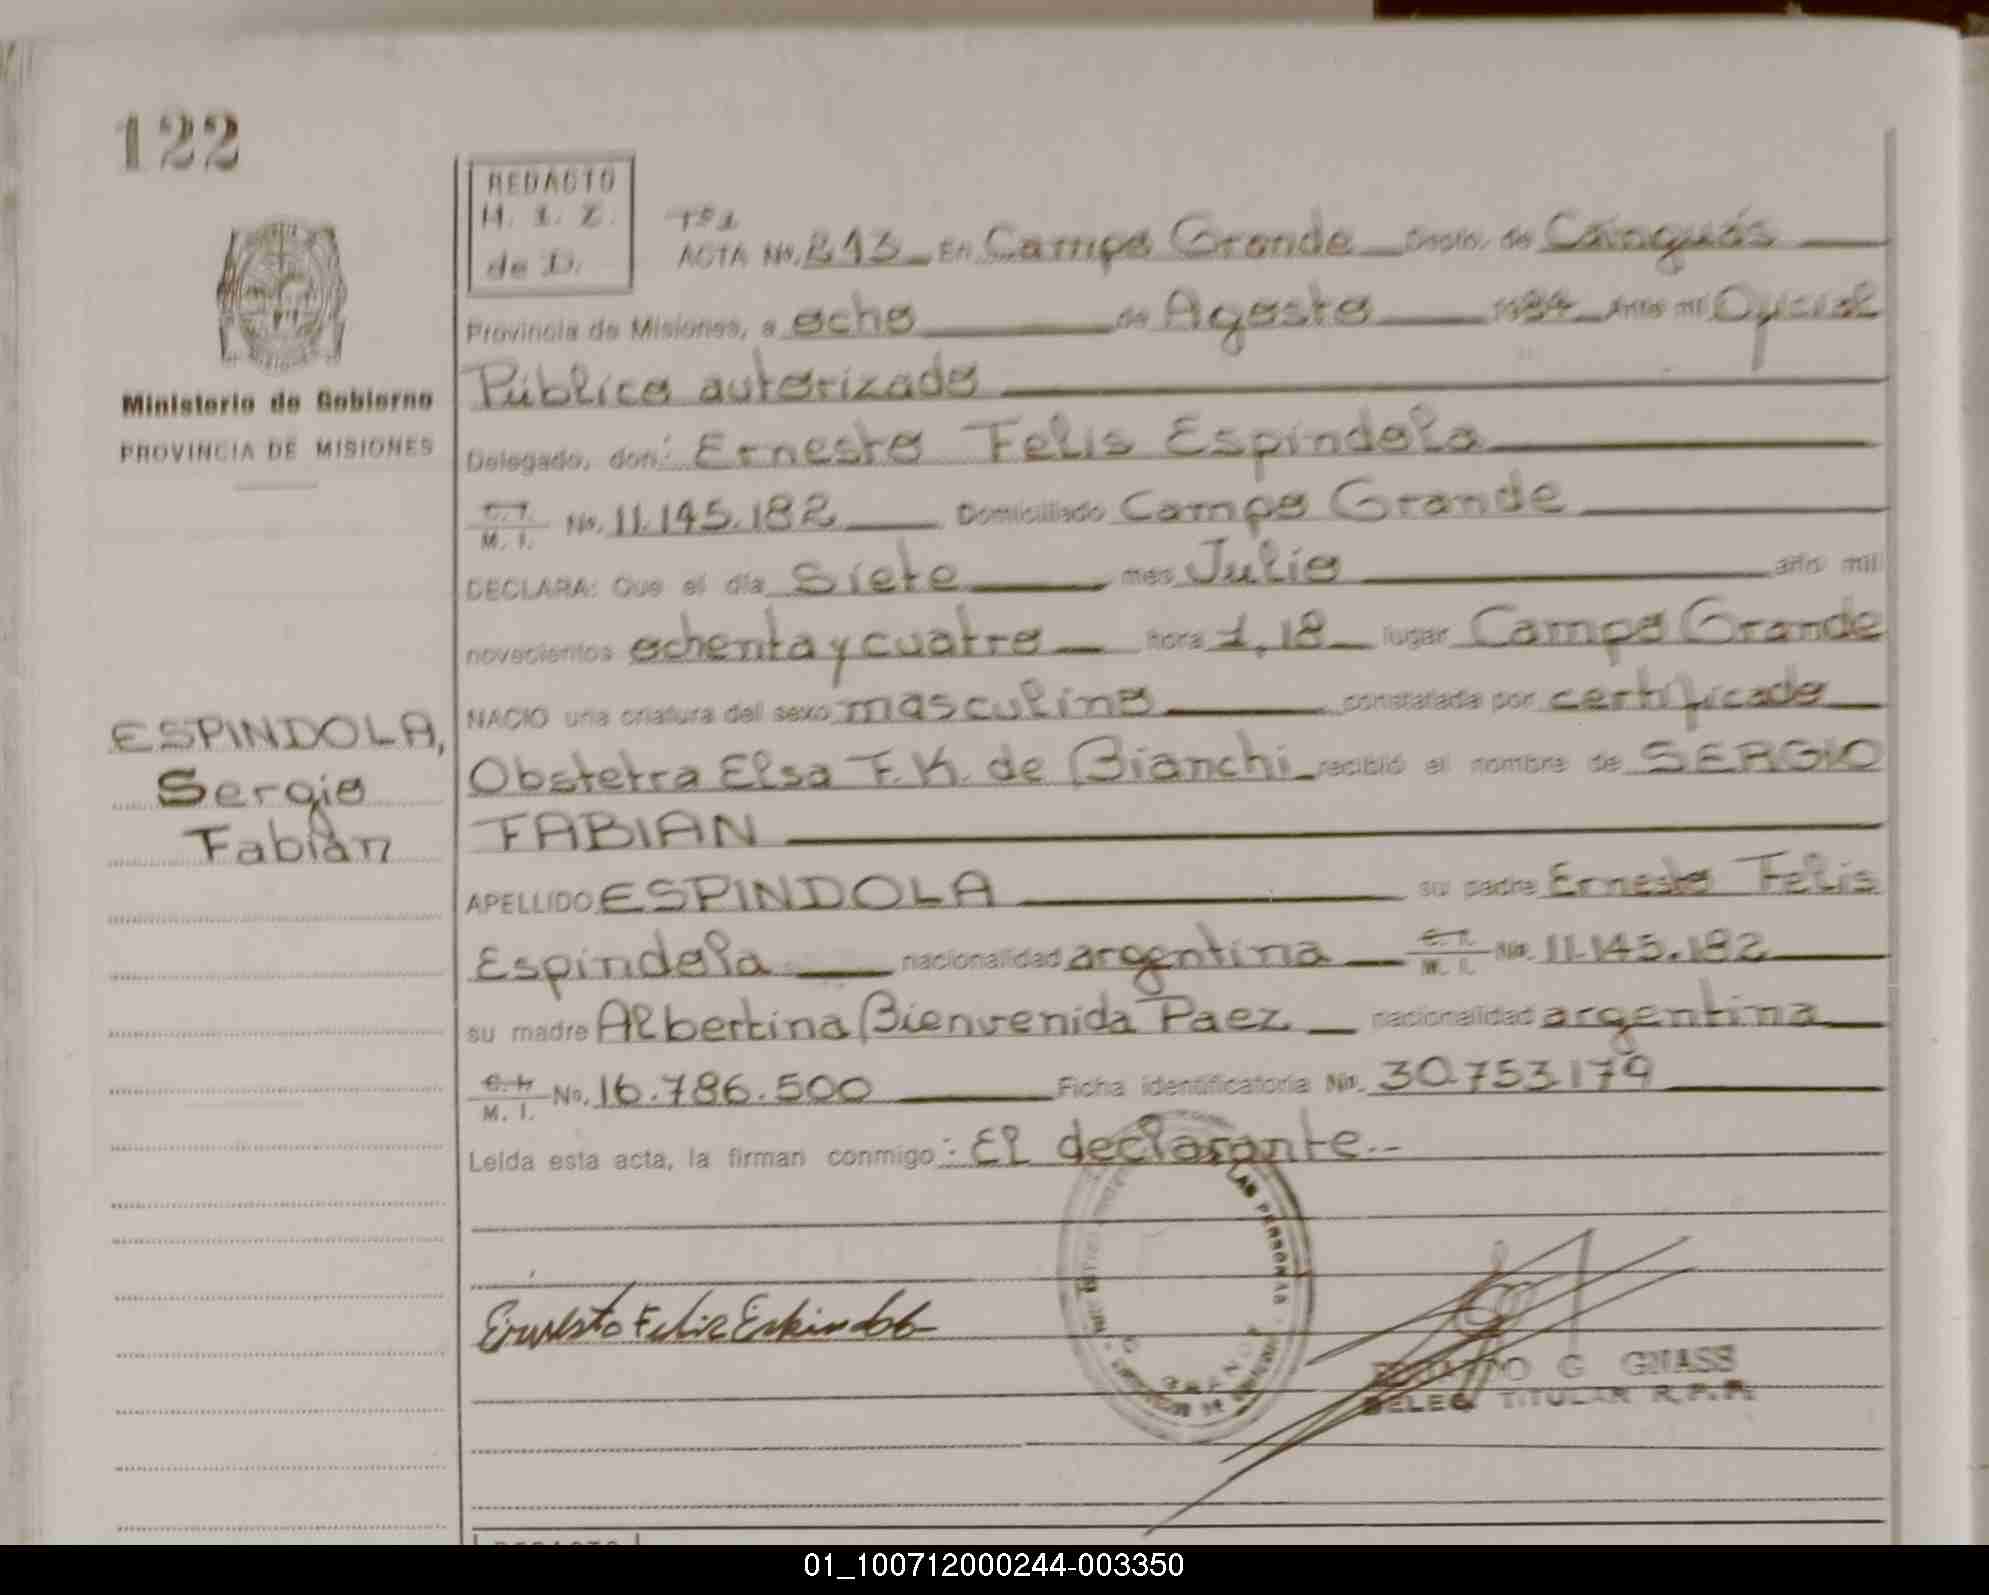 122
REDACTO
M. I. Z.
de D.
Tº 1
ACTA No. 243 En Campo Grande Depto. de Cainguás
Provincia de Misiones, a ocho de Agosto 1984 Ante mi Oficial
Público autorizado
Ministerio de Gobierno
PROVINCIA DE MISIONES
Delegado, don: Ernesto Felis Espindola
C. I. M. I. No. 11.145.182 Domiciliado Campo Grande
DECLARA: Que el día Siete mes Julio año mil
novecientos ochenta y cuatro hora 1,18 lugar Campo Grande
NACIO una criatura del sexo masculino constatada por certificado
Obstetra Elsa F. K. de Bianchi recibió el nombre de SERGIO
FABIAN
ESPINDOLA,
Sergio
Fabián
APELLIDO ESPINDOLA su padre Ernesto Felis
Espindola nacionalidad argentina C. I. M. I. No. 11.145.182
su madre Albertina Bienvenida Paez nacionalidad argentina
C. I. M. I. No. 16.786.500 Ficha identificatoria No. 30.753.179
Leída esta acta, la firman conmigo: El declarante.-
Ernesto Felis Espindola
LAS PERSONAS
G GNASS
DELEG TITULAR R.P.P.
01_100712000244-003350